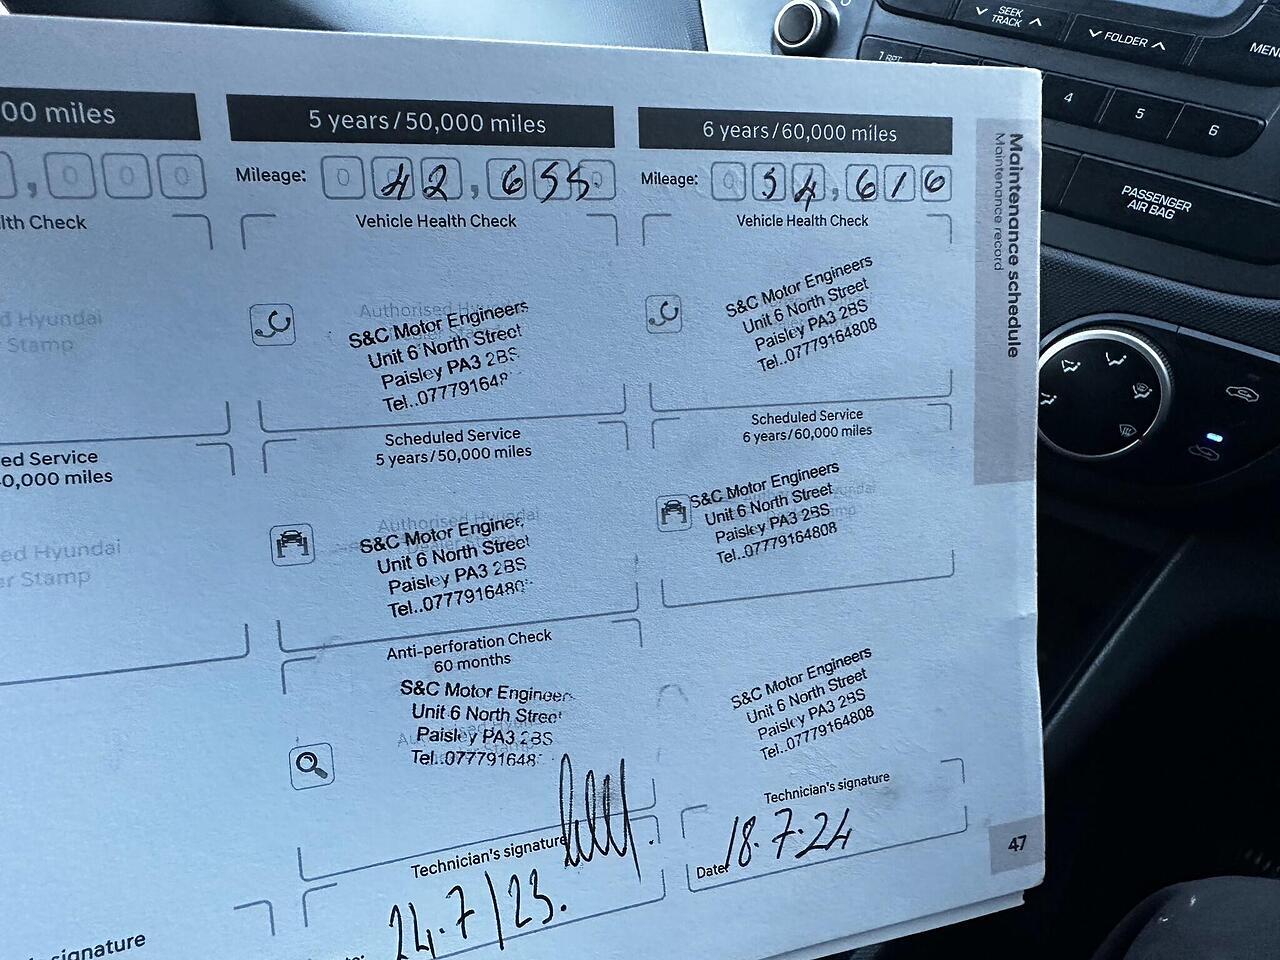 SEEK
TRACK
FOLDER
MENU
1 RPT
4
5
6
PASSENGER
AIR BAG
00 miles
lth Check
d Hyundai
Stamp
ed Service
0,000 miles
ed Hyundai
er Stamp
signature
5 years/50,000 miles
Mileage: 0 42,655
Vehicle Health Check
Authorised
S&C Motor Engineers
Unit 6 North Street
Paisley PA3 2BS
Tel..077791648
Scheduled Service
5 years/50,000 miles
Authorised Hyundai
S&C Motor Engineer
Unit 6 North Street
Paisley PA3 2BS
Tel..0777916480
Anti-perforation Check
60 months
S&C Motor Engineer
Unit 6 North Street
Paisley PA3 2BS
Tel..077791648
Technician's signature
24.7/23.
6 years/60,000 miles
Mileage: 0 54,616
Vehicle Health Check
S&C Motor Engineers
Unit 6 North Street
Paisley PA3 2BS
Tel..07779164808
Scheduled Service
6 years/60,000 miles
S&C Motor Engineers
Unit 6 North Street
Paisley PA3 2BS
Tel..07779164808
S&C Motor Engineers
Unit 6 North Street
Paisley PA3 2BS
Tel..07779164808
Technician's signature
Date: 18.7.24
Maintenance schedule
Maintenance record
47